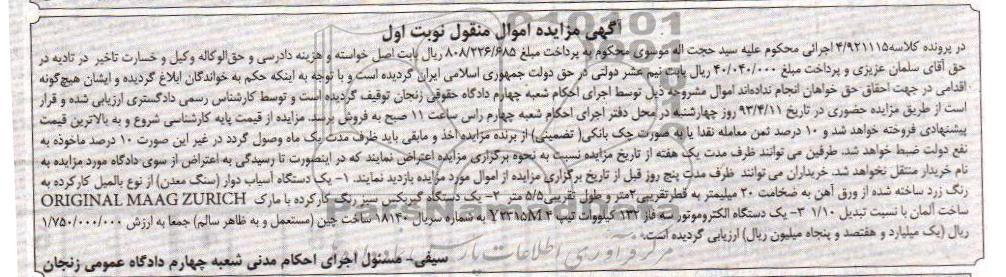 آگهی مزایده اموال منقول نوبت اول
در پرونده کلاسه۴/۹۲۱۱۱۵ اجرائی محکوم علیه سید حجت اله موسوی محکوم به پرداخت مبلغ ۸۰۸/۲۲۶/۶۸۵ ریال بابت اصل خواسته و هزینه دادرسی و حق‌الوکاله وکیل و خسارت تاخیر در تادیه در
حق آقای سلمان عزیزی و پرداخت مبلغ ۴۰/۰۴۰/۰۰۰ ریال بابت نیم عشر دولتی در حق دولت جمهوری اسلامی ایران گردیده است و با توجه به اینکه حکم به خواندگان ابلاغ گردیده و ایشان هیچ‌گونه
اقدامی در جهت احقاق حق خواهان انجام نداده‌اند اموال مشروحه ذیل توسط اجرای احکام شعبه چهارم دادگاه حقوقی زنجان توقیف گردیده است و توسط کارشناس رسمی دادگستری ارزیابی شده و قرار
است از طریق مزایده حضوری در تاریخ ۹۳/۴/۱۱ روز چهارشنبه در محل دفتر اجرای احکام شعبه چهارم راس ساعت ۱۱ صبح به فروش برسد. مزایده از قیمت پایه کارشناسی شروع و به بالاترین قیمت
پیشنهادی فروخته خواهد شد و ۱۰ درصد ثمن معامله نقدا یا به صورت چک بانکی( تضمینی) از برنده مزایده اخذ و مابقی باید ظرف مدت یک ماه وصول گردد در غیر این صورت ۱۰ درصد ماخوذه به
نفع دولت ضبط خواهد شد. طرفین می توانند ظرف مدت یک هفته از تاریخ مزایده نسبت به نحوه برگزاری مزایده اعتراض نمایند که در اینصورت تا رسیدگی به اعتراض از سوی دادگاه مورد مزایده به
نام خریدار منتقل نخواهد شد. خریداران می توانند ظرف مدت پنج روز قبل از تاریخ برگزاری مزایده از اموال مورد مزایده بازدید نمایند. ۱- یک دستگاه آسیاب دوار (سنگ معدن) از نوع بالمیل کارکرده به
رنگ زرد ساخته شده از ورق آهن به ضخامت ۲۰ میلیمتر به قطرتقریبی۲متر و طول تقریبی۵/۵ متر ۲- یک دستگاه گیربکس سبز رنگ کارکرده با مارک ORIGINAL MAAG ZURICH
ساخت آلمان با نسبت تبدیل ۱/۱۰ ۳- یک دستگاه الکتروموتور سه فاز ۱۳۲ کیلووات تیپ Y۳۳۱۵M۴ به شماره سریال ۱۸۱۴۰ ساخت چین (مستعمل و به ظاهر سالم) جمعا به ارزش ۱/۷۵۰/۰۰۰/۰۰۰
ریال (یک میلیارد و هفتصد و پنجاه میلیون ریال) ارزیابی گردیده است.
سیفی- مسئول اجرای احکام مدنی شعبه چهارم دادگاه عمومی زنجان